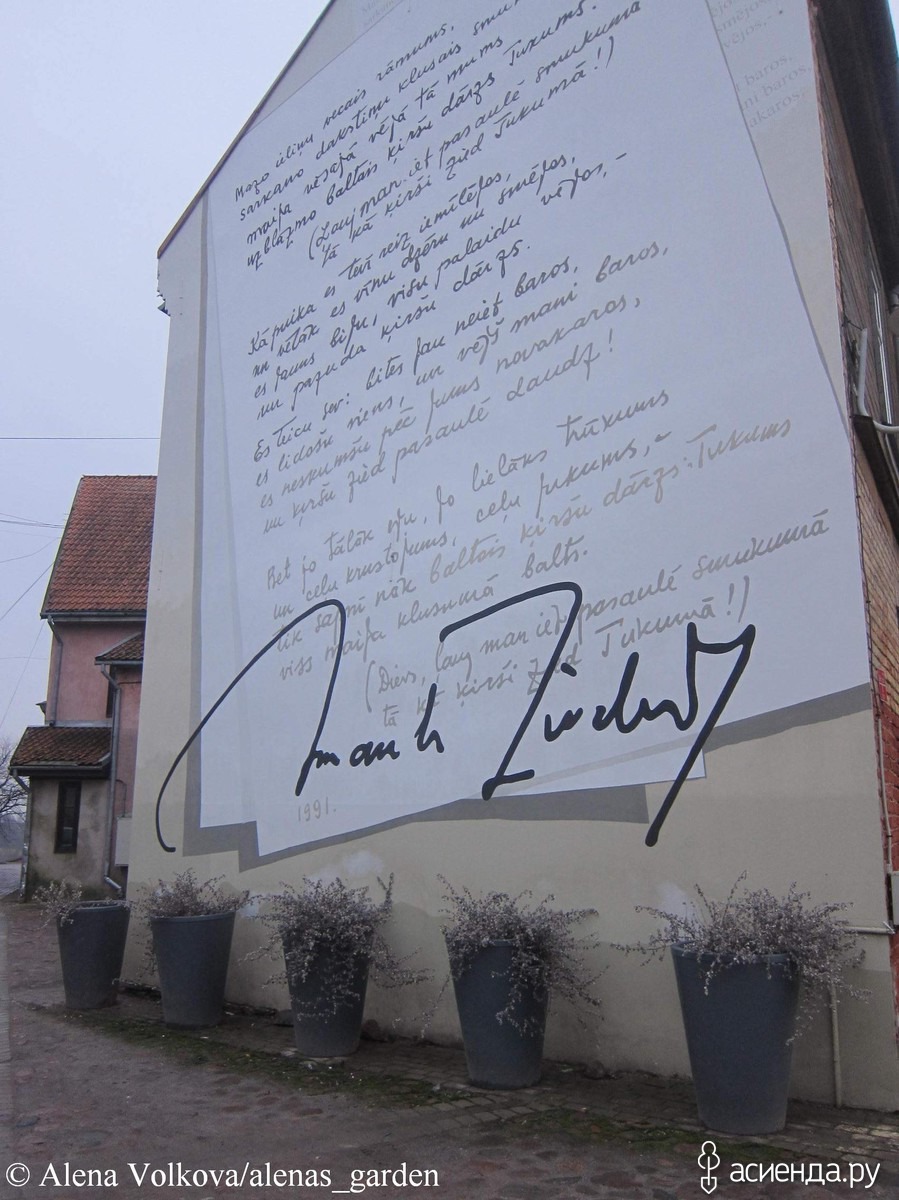 Mazo ieliņu vecais rāmums,
sarkano dakstiņu klusais
maija vēsajā vējā tā mums
uzblāzmo baltais ķiršu dārzs Tukums.
(Ļauj man iet pasaulē smukumā
tā kā ķirši zied Tukumā!)
Kā puika es tevī reiz iemīlējos,
un vēlāk es vīnu dzēru un smējos,
es jauns biju, visu palaidu vējos, –
nu pazuda ķiršu dārzs.
Es teicu sev: bites jau neiet baros,
es lidošu viens, un vējš mani baros,
es neskumšu pēc jums novakaros,
nu ķiršu zied pasaulē daudz!
Bet jo tālāk eju, jo lielāks trūkums
un ceļu krustojums, ceļu jukums, –
tik sapnī nāk baltais ķiršu dārzs: Tukums
viss maija klusumā balts.
(Dievs, ļauj man iet pasaulē smukumā
tā kā ķirši zied Tukumā!)
Imants Ziedonis
1991.
smējos,
vējos,
baros,
ni baros,
akaros,
© Alena Volkova/alenas_garden
асиенда.ру